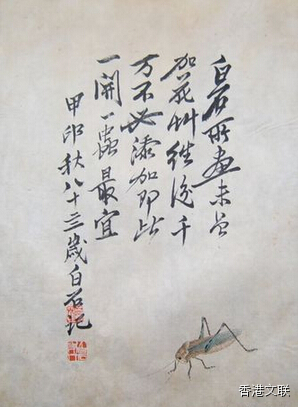 白石所畫未曾
加花艸往後千
万不必添加即此
一開一蟲最宜
甲申秋八十三歲白石記
香港文联